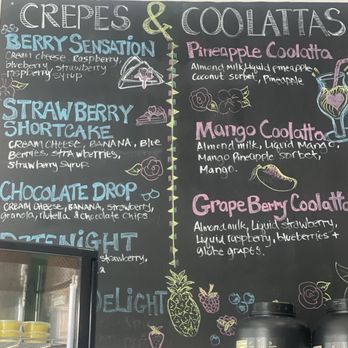 CREPES & COOLATTAS
BERRY SENSATION
Cream cheese, Raspberry,
blueberry, strawberry
raspberry syrup
STRAWBERRY
SHORTCAKE
CREAM CHEESE, BANANA, Blue
Berries, strawberries,
Strawberry Syrup.
CHOCOLATE DROP
CREAM CHEESE, BANANA, strawberry,
granola, nutella & chocolate chips
DATENIGHT
strawberry,
DELIGHT
Pineapple Coolatta
Almond milk, Liquid pineapple
Coconut sorbet, Pineapple
Mango Coolatta
Almond milk, Liquid Mango,
Mango Pineapple sorbet,
Mango.
GrapeBerry Coolatta
Almond milk, Liquid strawberry,
Liquid raspberry, blueberries +
Globe grapes.